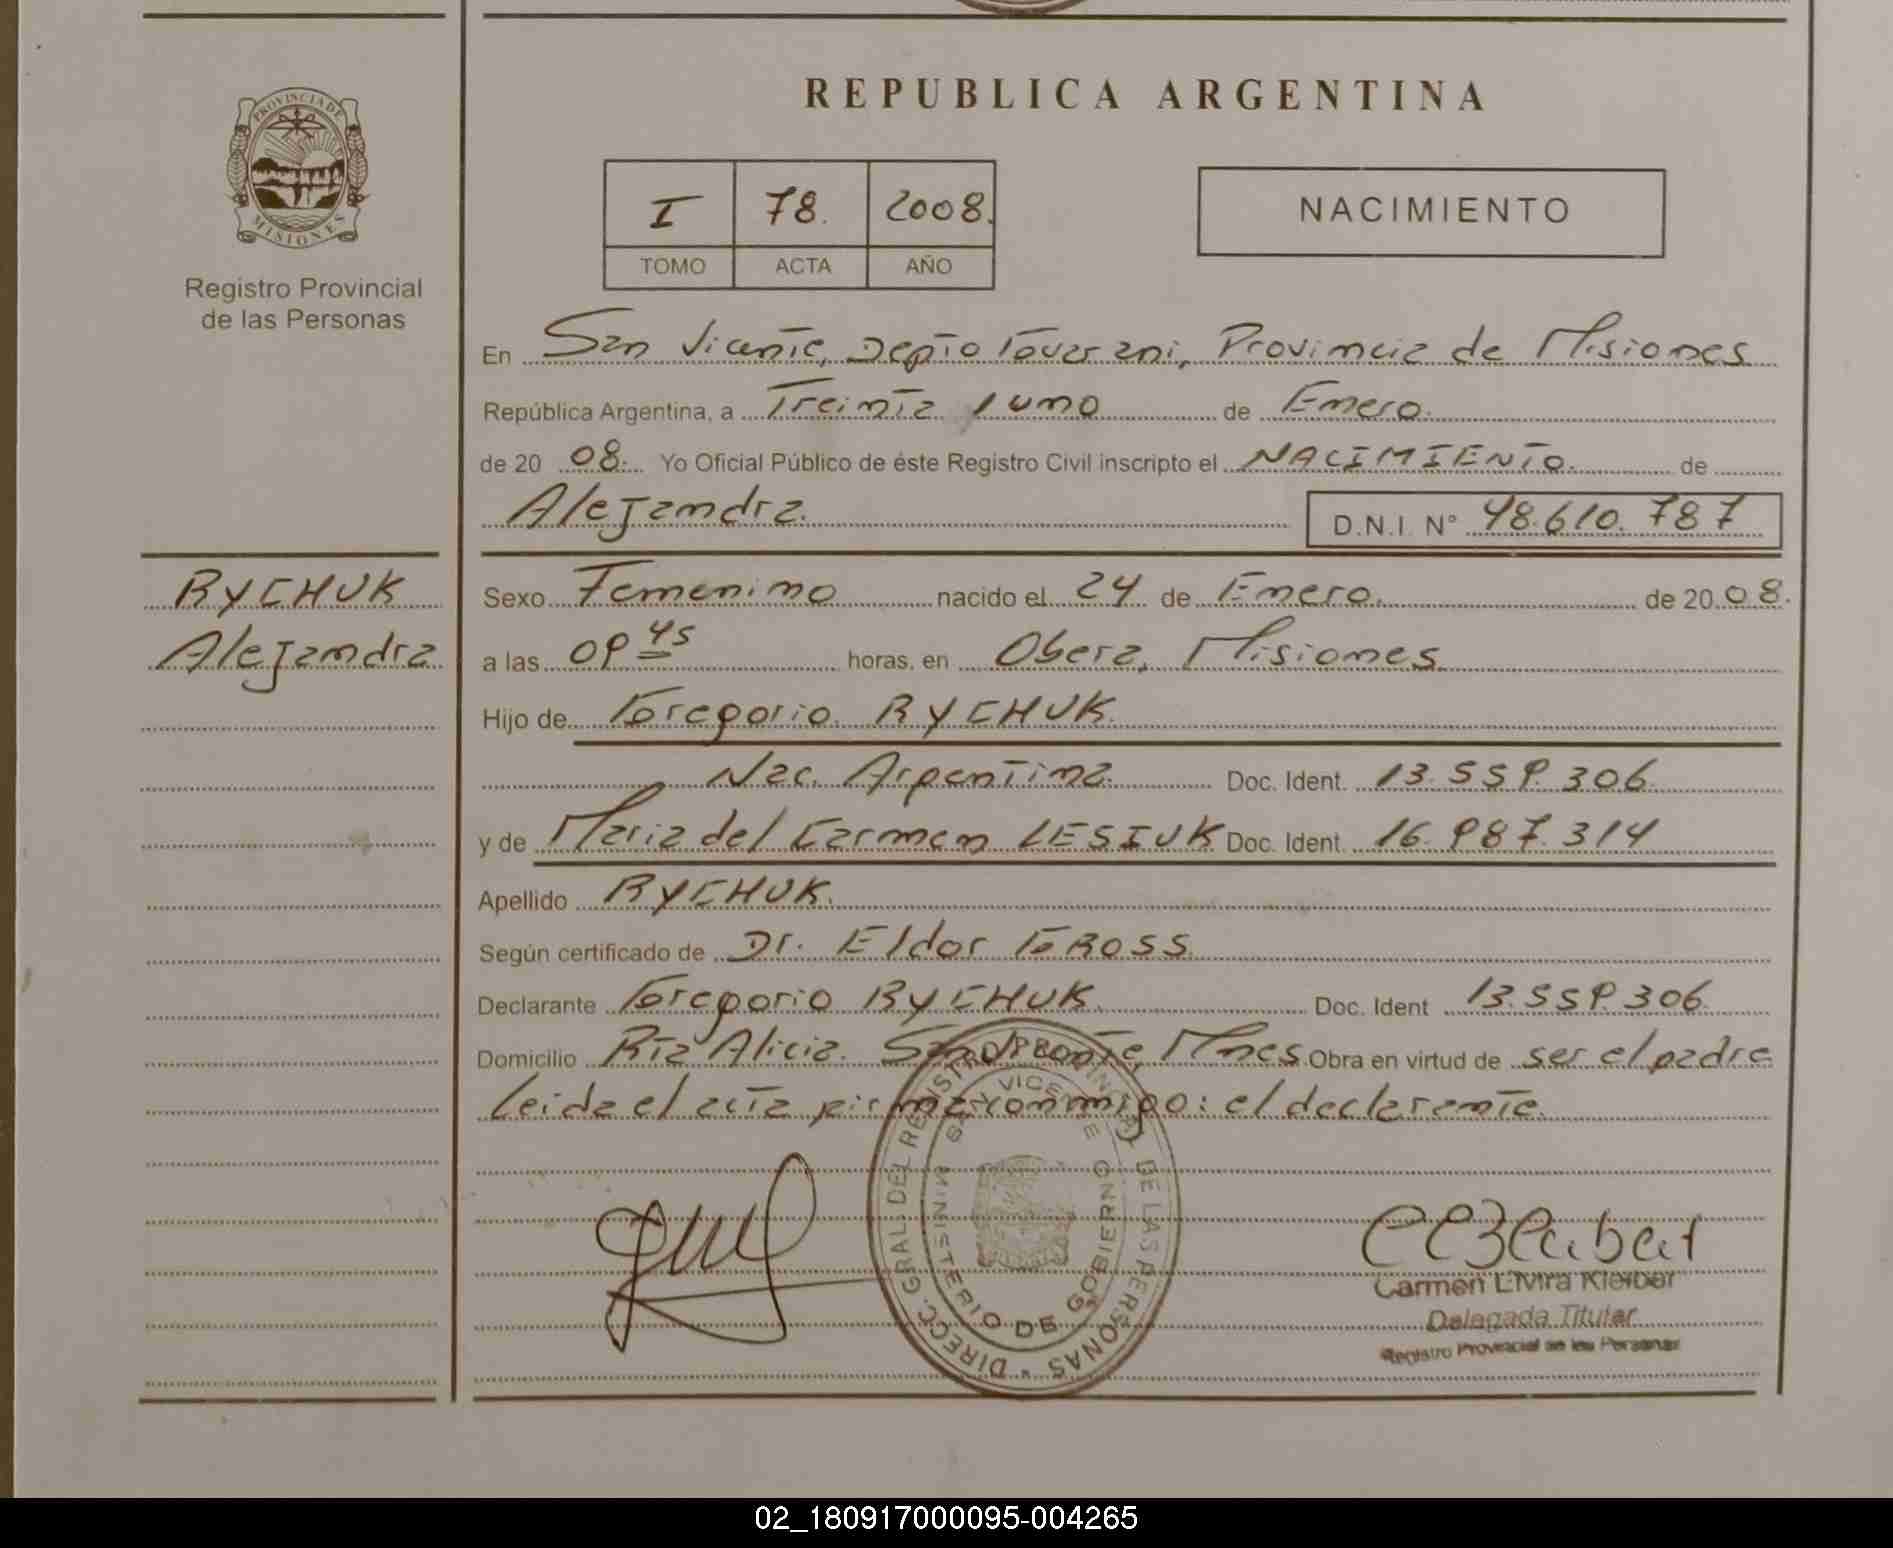 PROVINCIA DE
MISIONES
Registro Provincial
de las Personas
REPUBLICA ARGENTINA
I 78. 2008.
TOMO ACTA AÑO
NACIMIENTO
En San Vicente, Depto Guarani, Provincia de Misiones
República Argentina, a Treinta y uno de Enero.
de 20 08. Yo Oficial Público de éste Registro Civil inscripto el NACIMIENTO. de
Alejandra. D.N.I. N° 48.610.787
RYCHUK
Alejandra
Sexo Femenino nacido el 24 de Enero. de 20 08.
a las 09 45 horas, en Obera, Misiones.
Hijo de Gregorio RYCHUK.
Nac. Argentina. Doc. Ident. 13.559.306.
y de Maria del Carmen LESIUK Doc. Ident. 16.987.314
Apellido RYCHUK.
Según certificado de Dr. Eldor GROSS.
Declarante Gregorio RYCHUK. Doc. Ident 13.559.306.
Domicilio Pta Alicia. San Vicente, Mnes. Obra en virtud de ser el padre
Leida el acta firma conmigo: el declarante.
DIRECC. GRAL. DEL REGISTRO PROVINCIAL DE LAS PERSONAS
SAN VICENTE
MINISTERIO DE GOBIERNO
Carmen Elvira Kleiber
Delegada Titular
Registro Provincial de las Personas
02_180917000095-004265